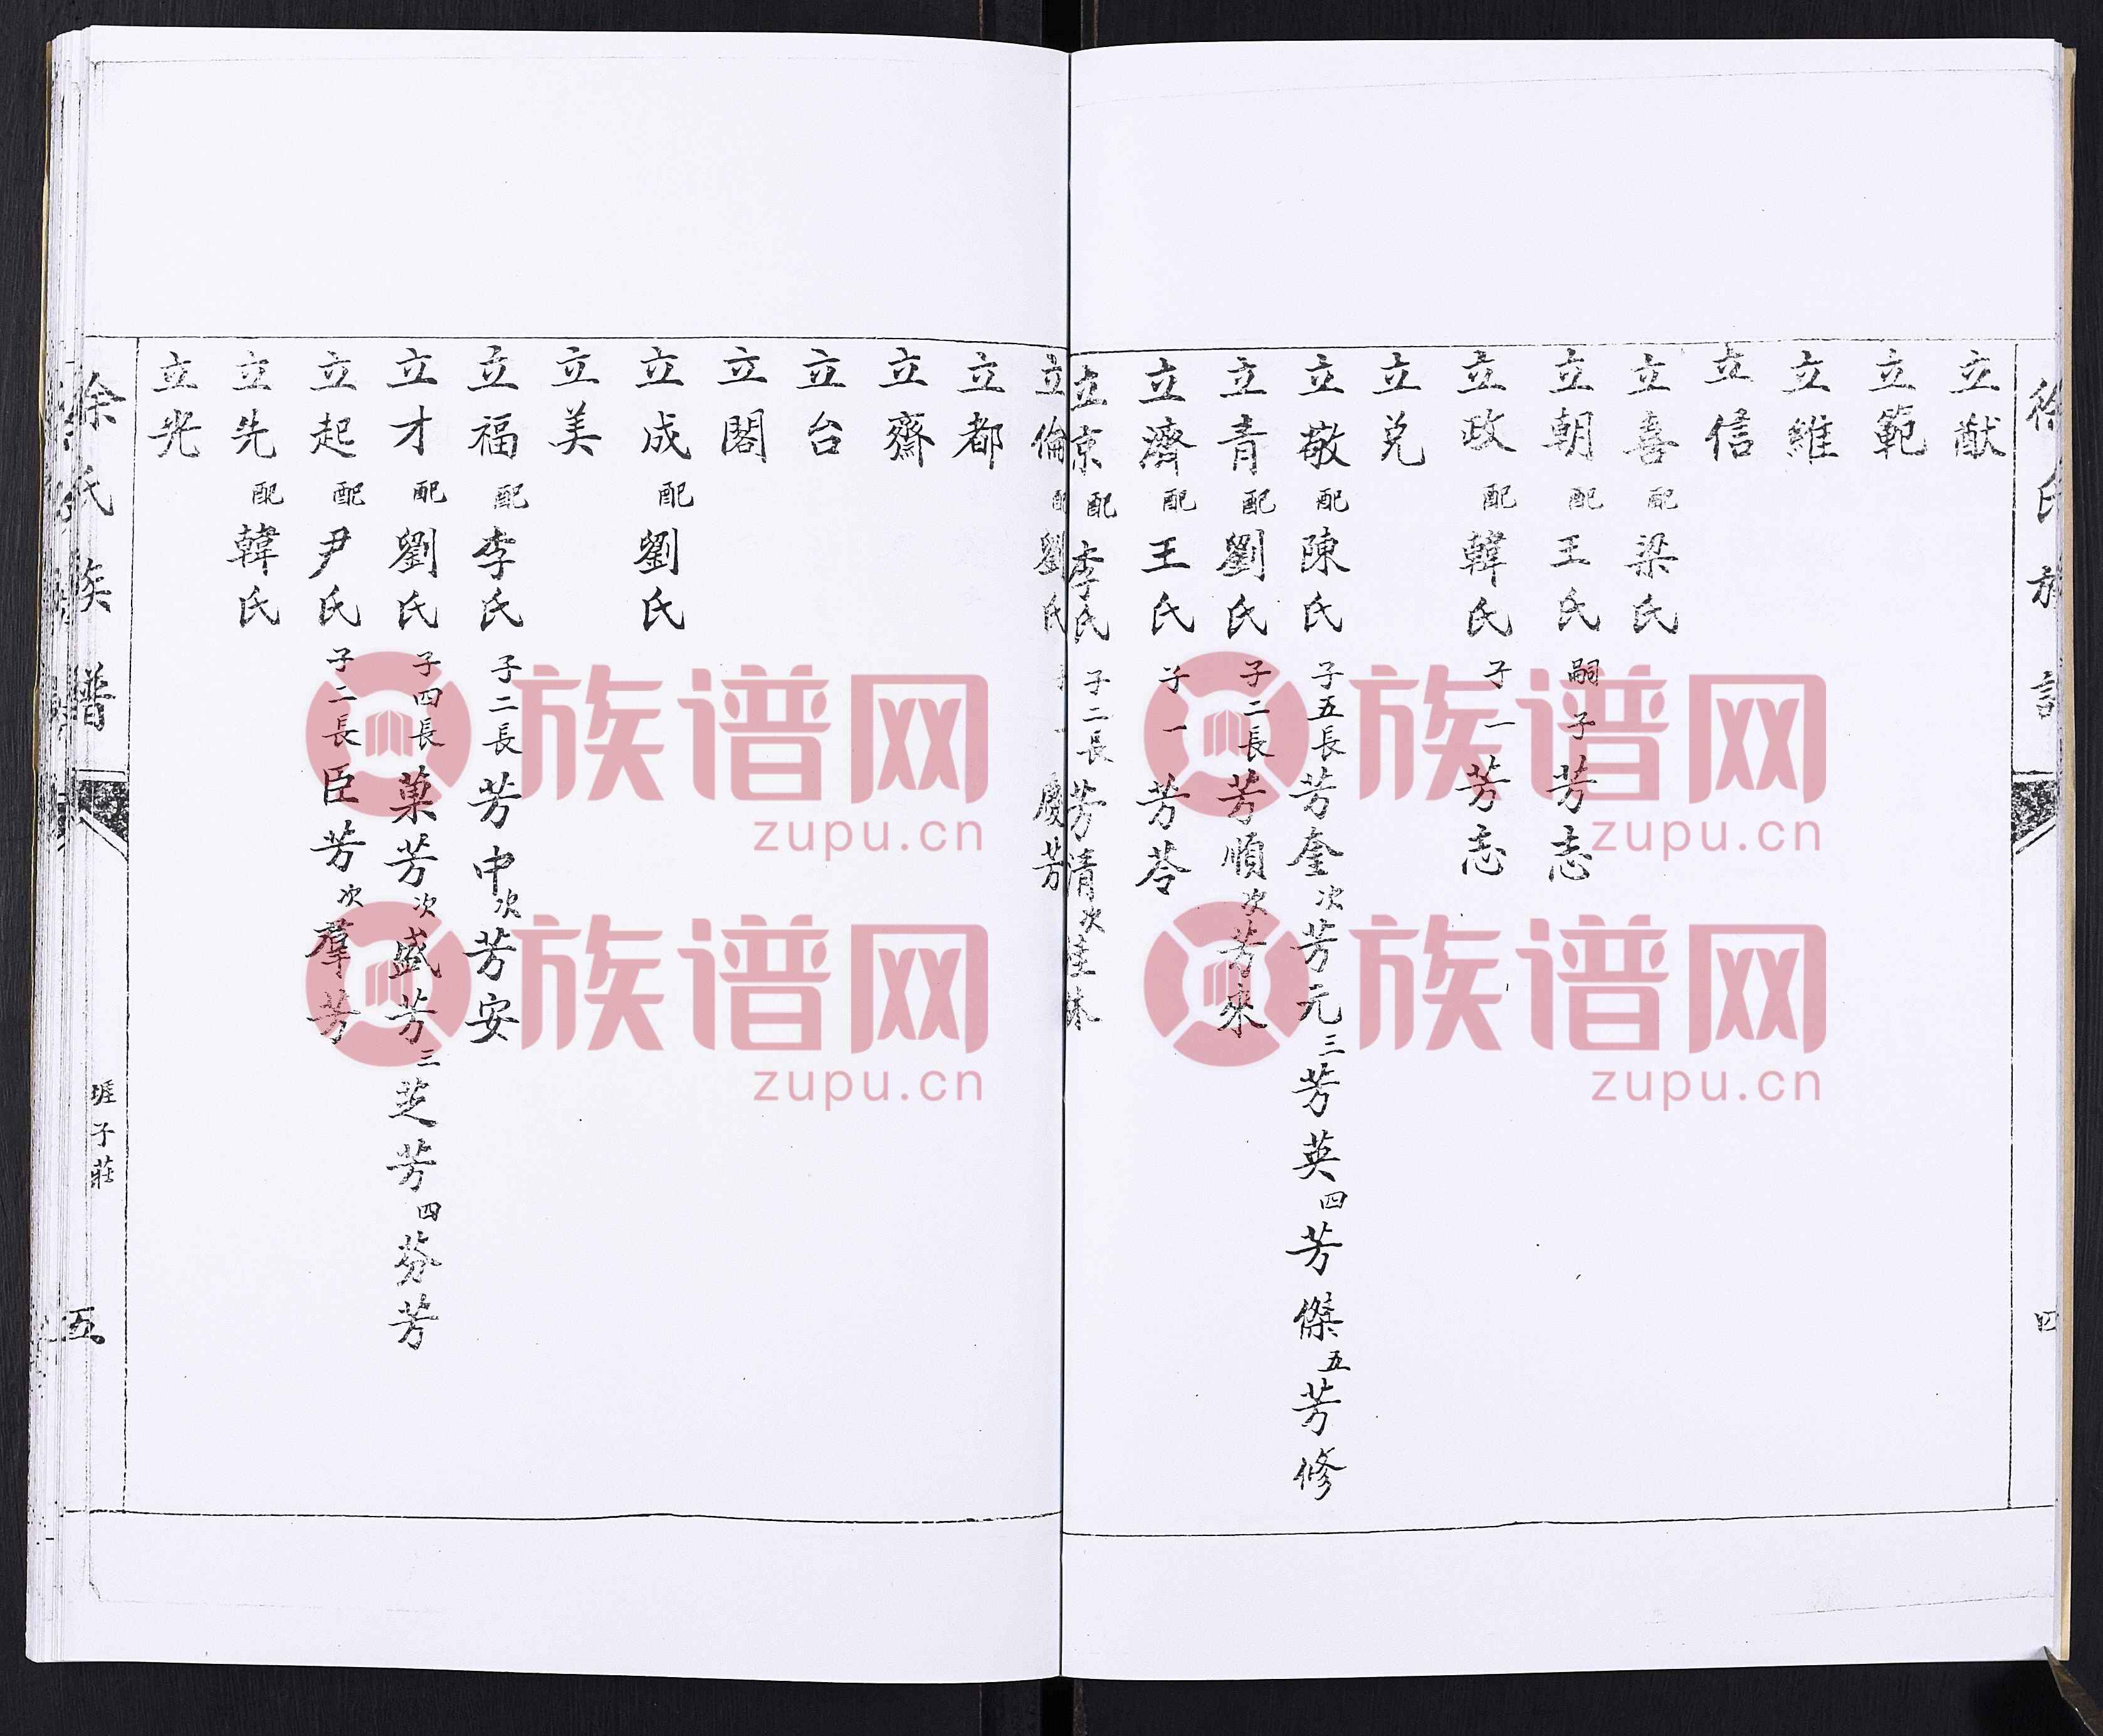 徐氏族譜
四
立猷
立範
立維
立信
立喜 配 梁氏
立朝 配 王氏 嗣子 芳志
立政 配 韓氏 子一 芳志
立兑
立敬 配 陳氏 子五長 芳奎 次 芳元 三 芳英 四 芳傑 五 芳修
立青 配 劉氏 子二長 芳順 次 芳來
立濟 配 王氏 子一 芳苓
立京 配 李氏 子二長 芳清 次
立倫 配 劉氏 子一 慶芳
立都
立齋
立台
立閣
立成 配 劉氏
立美
立福 配 李氏 子二長 芳中 次 芳安
立才 配 劉氏 子四長 菓芳 次 盛芳 三 芝芳 四 芬芳
立起 配 尹氏 子二長 臣芳 次 羣芳
立先 配 韓氏
立光
徐氏族譜
埕子莊
五
族谱网
zupu.cn
族谱网
zupu.cn
族谱网
zupu.cn
族谱网
zupu.cn